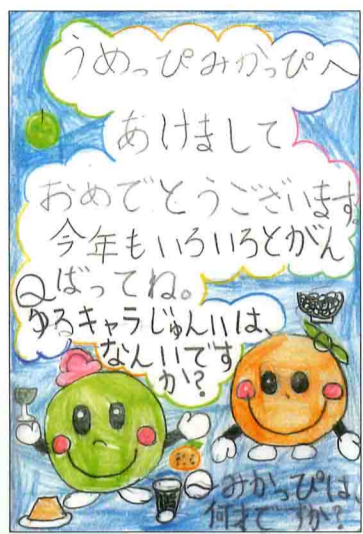 うめっぴみかっぴへ
あけまして
おめでとうございます。
今年もいろいろとがん
ばってね。
Qゆるキャラじゅんいは、
なんいです
か?
みかっぴは
何才ですか?